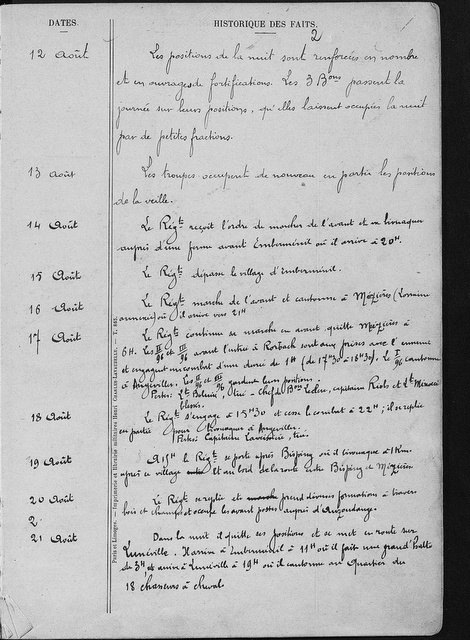 DATES.
HISTORIQUE DES FAITS.
2
12 Août
Les positions de la nuit sont renforcées en nombre
et en ouvrages de fortifications. Les 3 Bons passent la
journée sur leurs positions, qu'elles laissent occupées la nuit
par de petites fractions.
13 Août
Les troupes occupent de nouveau en partie les positions
de la veille.
14 Août
Le Régt reçoit l'ordre de marcher de l'avant et va bivouaquer
auprès d'une ferme avant Emberménil où il arrive à 20H.
15 Août
Le Régt dépasse le village d'Emberménil.
16 Août
Le Régt marche de l'avant et cantonne à Mézières (Lorraine
annexée) où il arrive vers 21H
17 Août
Le Régt continue sa marche en avant quitte Mézières à
6H. Les II/96 et III/96 avant l'entrée à Rorbach sont aux prises avec l'ennemi
et engagent un combat d'une durée de 1H (de 17H30 à 18H30). Le I/96 cantonne
à Angviller. Les II/96 et III/96 gardent leurs positions.
Pertes: Lt tué chef de Bon capitaine Lt
blessés.
18 Août
Le Régt s'engage à 15H30 et cesse le combat à 22H; il se replie
en partie pour bivouaquer à Angviller.
Pertes: Capitaine tué.
19 Août
A 15H le Régt se porte après Bisping où il bivouaque à 1Km.
après ce village et au bord de la route entre Bisping et Mézières
20 Août
Le Régt se replie et prend diverses formations à travers
bois et champs et occupe les avant postes auprès d'Azoudange.
2
21 Août
Dans la nuit il quitte ses positions et se met en route sur
Lunéville. Il arrive à Emberménil à 11H où il fait une grand'halte
de 3H, et arrive à Lunéville à 19H où il cantonne au Quartier du
18 chasseurs à cheval
Paris et Limoges. — Imprimerie et librairie militaires Henri CHARLES-LAVAUZELLE. — T. 862.